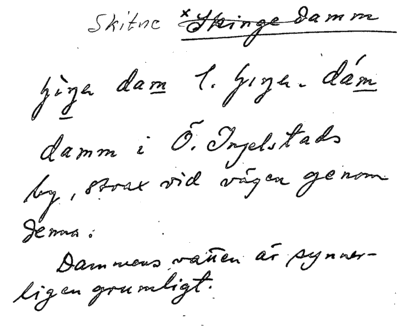 Skitne × Skinge damm
dam l. dám
damm i Ö. Ingelstads
by, strax vid vägen genom
denna.
Dammens vatten är synner-
ligen grumligt.